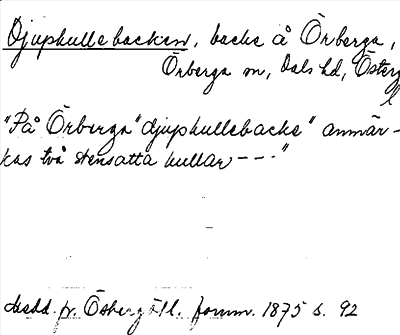 Djuphullebacken, backe å Örberga,
Örberga sn, Dals hd, Österg
l
"På Örberga "djuphullebacke" anmär-
kas två stensatta kullar ---"
fr. Östergötl. fornm. 1875 s. 92